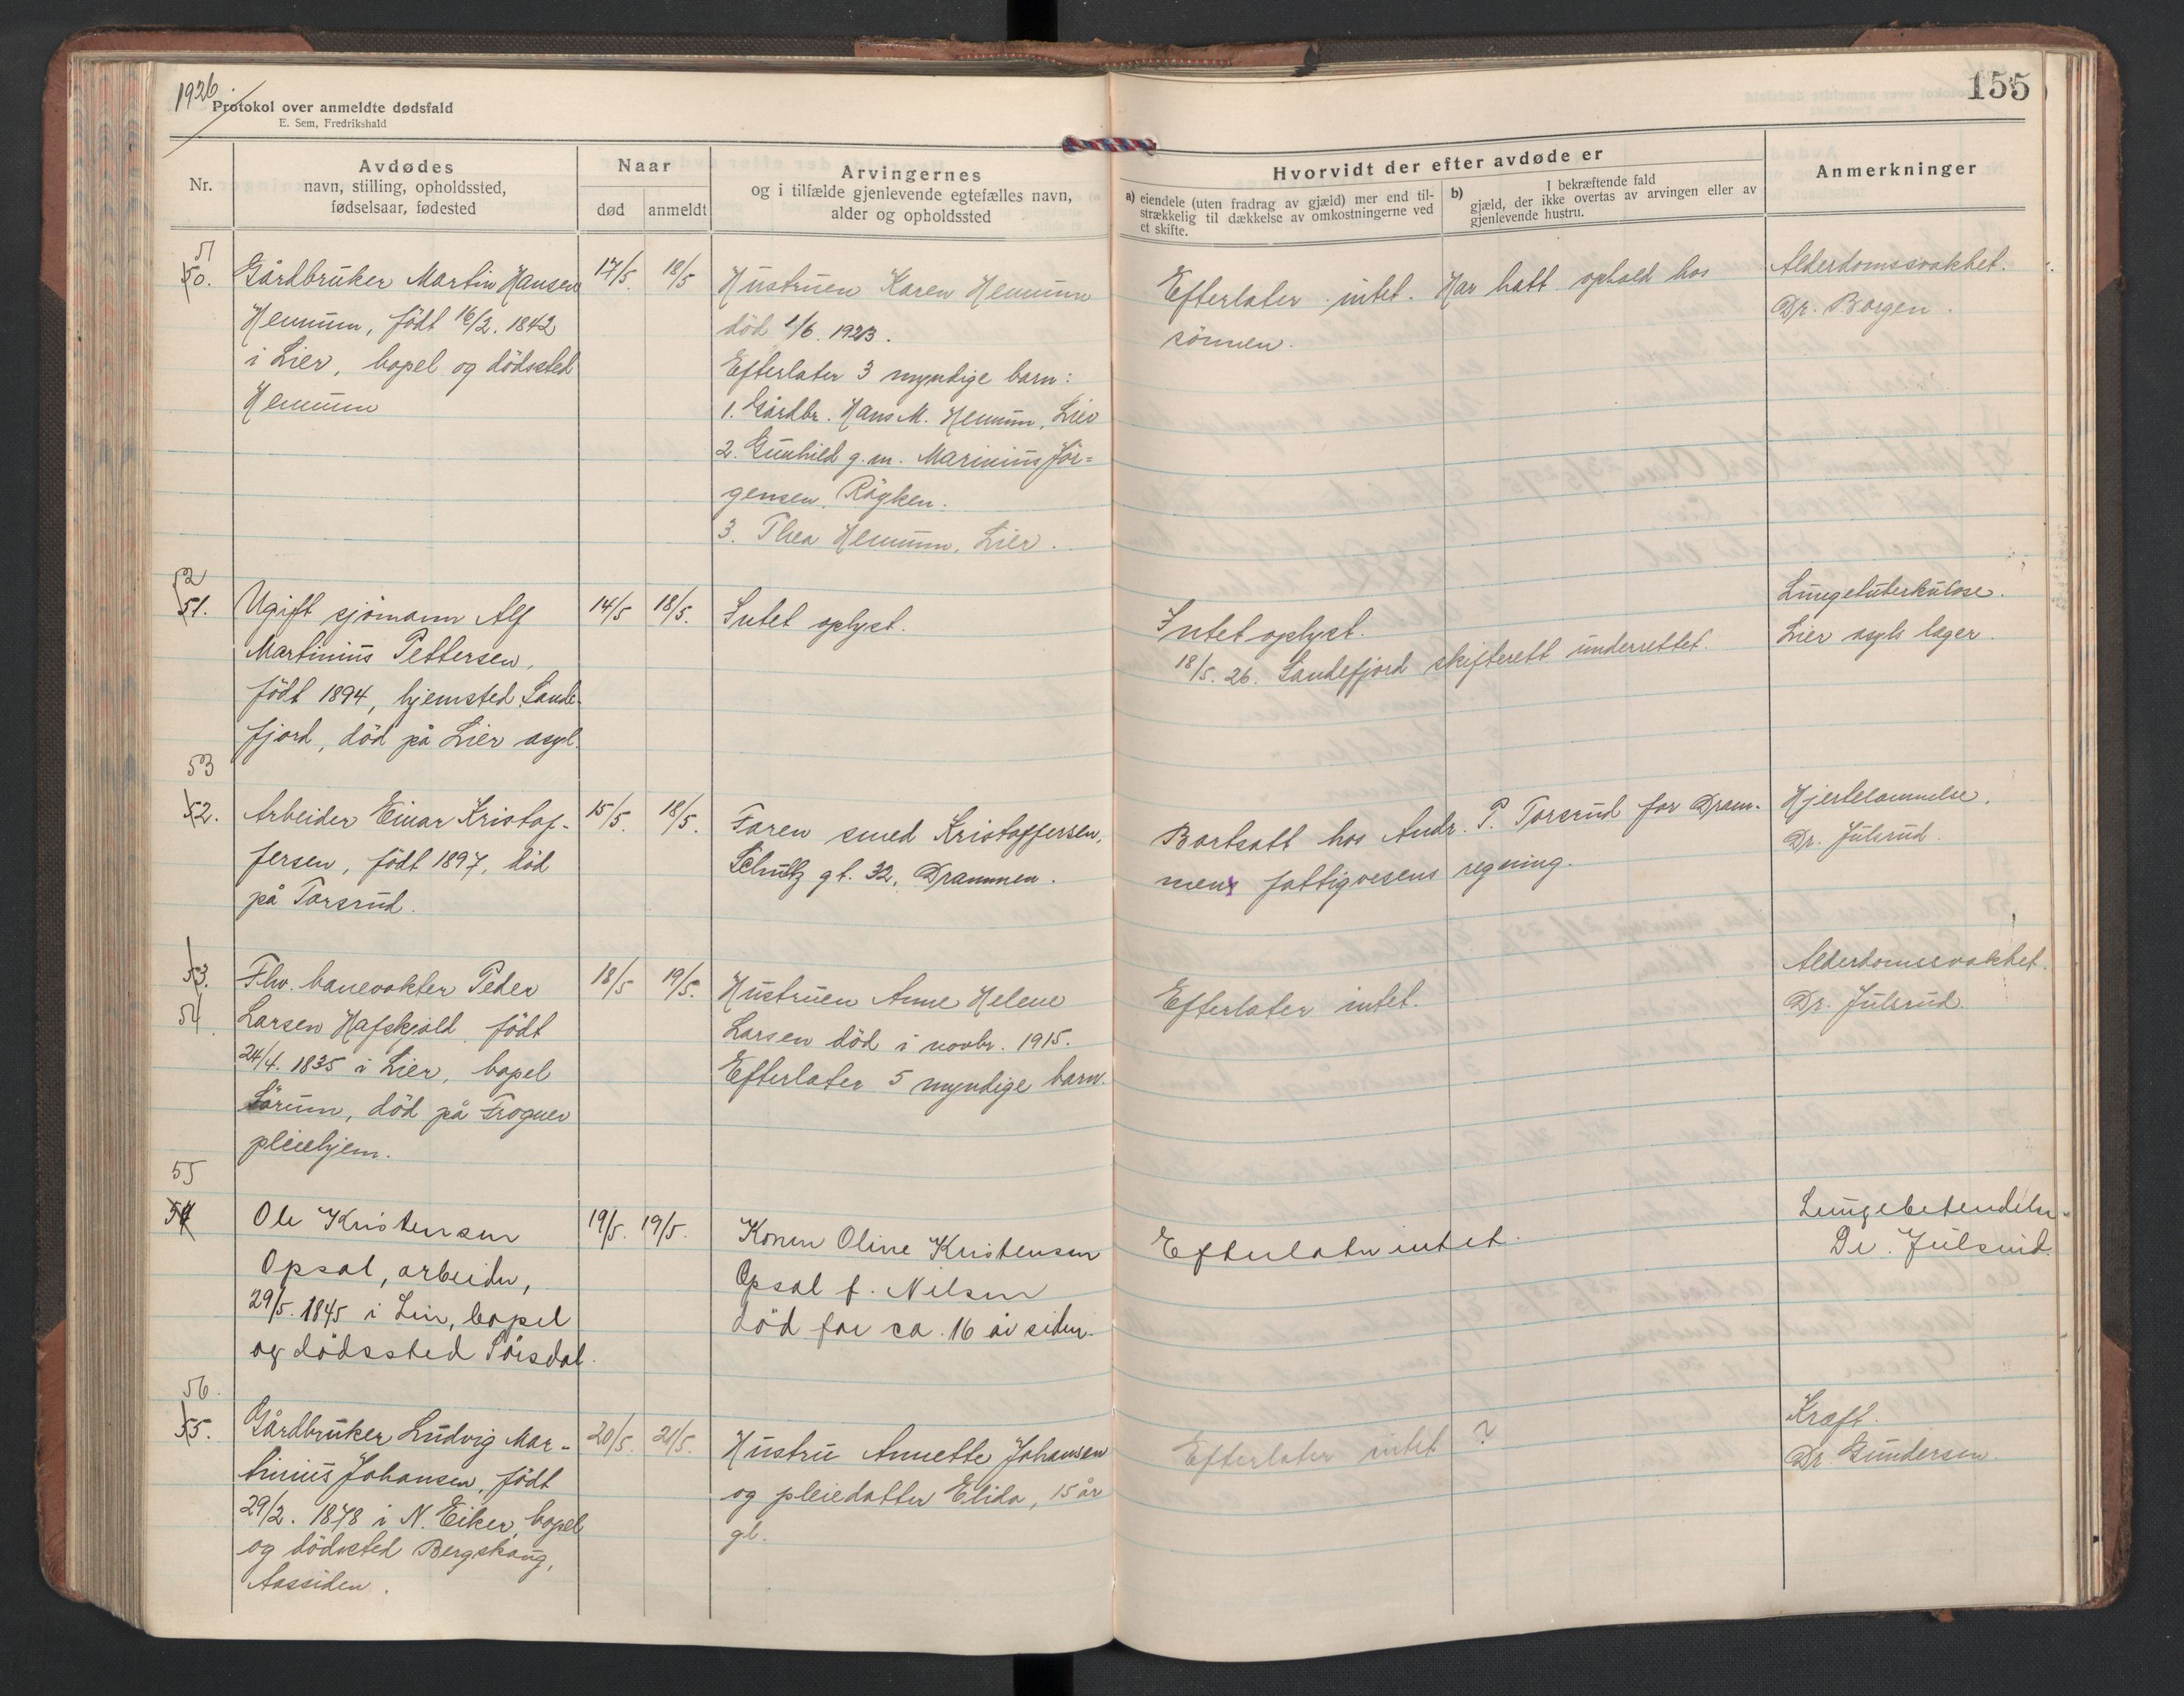 1926
Protokol over anmeldte dødsfald
E. Sem, Fredrikshald
155
Nr.
Avdødes
navn, stilling, opholdssted,
fødselsaar, fødested
Naar
død
anmeldt
Arvingernes
og i tilfælde gjenlevende egtefælles navn,
alder og opholdssted
Hvorvidt der efter avdøde er
a) eiendele (uten fradrag av gjæld) mer end til-
strækkelig til dækkelse av omkostningerne ved
et skifte.
b) I bekræftende fald
gjæld, der ikke overtas av arvingen eller av
gjenlevende hustru.
Anmerkninger
51
50.
Gårdbruker Martin Hansen
Hennum, född 16/2. 1842
i Lier, bopel og dödssted
Hennum
17/5.
18/5
Hustruen Karen Hennum
död 1/6. 1923.
Efterlater 3 myndige barn:
1. Gårdbr. Hans M. Hennum, Lier
2. Gunhild g. m. Marinius Jör=
gensen, Röyken.
3. Thea Hennum, Lier.
Efterlater intet. Har hatt ophold hos
sönnen.
Alderdomssvakhet.
Dr. Borgen.
52
51.
Ugift sjömann Alf
Martinius Pettersen,
född 1894, hjemsted Sande-
fjord, död på Lier asyl.
14/5
18/5.
Intet oplyst.
Intet oplyst.
18/5. 26. Sandefjord skifterett underrettet.
Lungetuberkulose.
Lier asyls læger.
53
52.
Arbeider Einar Kristof-
fersen, född 1897, död
på Torsrud.
15/5.
18/5.
Faren smed Kristoffersen,
Schultz gt. 32, Drammen.
Bortsatt hos Andr. P. Torsrud for Dram-
mens fattigvesens regning.
Hjertelammelse.
Dr. Julsrud.
53.
54
Fhv. banevokter Peder
Larsen Hafskjold, född
24/4. 1835 i Lier, bopel
Sörum, död på Frogner
pleiehjem.
18/5
19/5.
Hustruen Anne Helene
Larsen död i novbr. 1915.
Efterlater 5 myndige barn.
Efterlater intet.
Alderdomssvakhet.
Dr. Julsrud.
55
54
Ole Kristensen
Opsal, arbeider,
29/5. 1845 i Lier, bopel
og dödssted Sörsdal.
19/5.
19/5.
Konen Oline Kristensen
Opsal f. Nilsen
död for ca. 16 år siden.
Efterlater intet.
Lungebetendelse.
Dr. Julsrud.
56.
55.
Gårdbruker Ludvig Mar-
tinius Johansen, född
29/2. 1878 i N. Eiker, bopel
og dödssted Bergskaug,
Aassiden.
20/5.
21/5.
Hustru Annette Johansen
og pleiedatter Elida, 15 år
gl.
Efterlater intet ?
Kræft.
Dr. Gundersen.